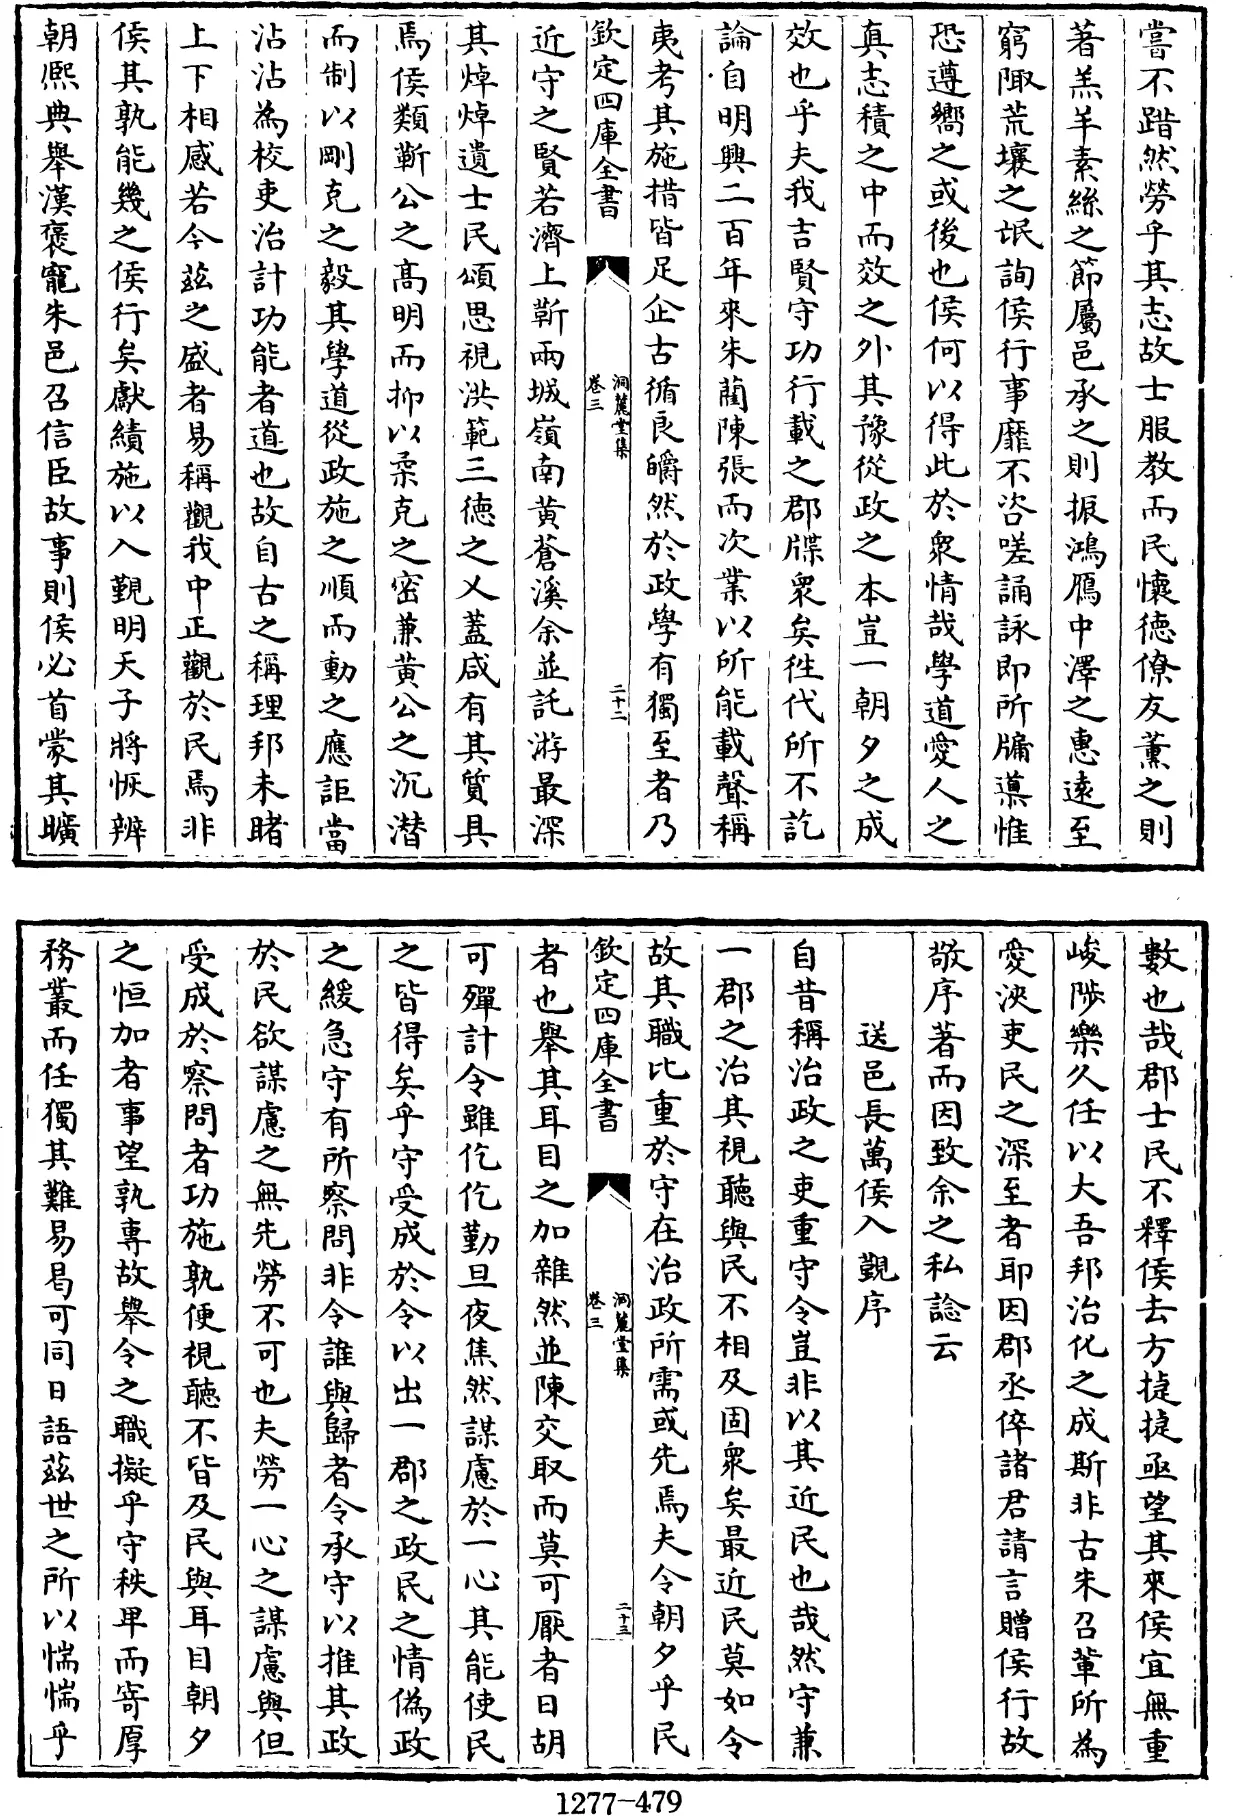 嘗不踖然勞乎其志故士服教而民懷德僚友薰之則
著羔羊素絲之節屬邑承之則振鴻鴈中澤之惠遠至
窮陬荒壤之氓詢侯行事靡不咨嗟誦詠即所牖導惟
恐遵嚮之或後也侯何以得此於衆情哉學道愛人之
真志積之中而效之外其豫從政之本豈一朝夕之成
效也乎夫我吉賢守功行載之郡牒衆矣徃代所不訖
論自明興二百年來朱藺陳張而次業以所能載聲稱
夷考其施措皆足企古循良皭然於政學有獨至者乃
欽定四庫全書
洞麓堂集
卷三
二十二
近守之賢若濟上靳兩城嶺南黄蒼溪余並託游最深
其焯焯遺士民頌思視洪範三德之乂蓋咸有其質具
焉侯類靳公之髙明而抑以柔克之密兼黄公之沉潛
而制以剛克之毅其學道從政施之順而動之應詎當
沾沾為校吏治計功能者道也故自古之稱理邦未睹
上下相感若今茲之盛者易稱觀我中正觀於民焉非
侯其孰能幾之侯行矣獻績施以入覲明天子將恢辨
朝熈典舉漢褒寵朱邑召信臣故事則侯必首蒙其曠
數也哉郡士民不釋侯去方捷捷亟望其來侯宜無重
峻陟樂久任以大吾邦治化之成斯非古朱召軰所為
愛浹吏民之深至者耶因郡丞倅諸君請言贈侯行故
敬序著而因致余之私諗云
送邑長萬侯入覲序
自昔稱治政之吏重守令豈非以其近民也哉然守兼
一郡之治其視聽與民不相及固衆矣最近民莫如令
故其職比重於守在治政所需或先焉夫令朝夕乎民
欽定四庫全書
洞麓堂集
卷三
二十三
者也舉其耳目之加雜然並陳交取而莫可厭者日胡
可殫計令雖仡仡勤旦夜焦然謀慮於一心其能使民
之皆得矣乎守受成於令以出一郡之政民之情偽政
之緩急守有所察問非令誰與歸者令承守以推其政
於民欲謀慮之無先勞不可也夫勞一心之謀慮與但
受成於察問者功施孰便視聽不皆及民與耳目朝夕
之恒加者事望孰專故舉令之職擬乎守秩卑而寄厚
務叢而任獨其難易曷可同日語茲世之所以惴惴乎
1277-479